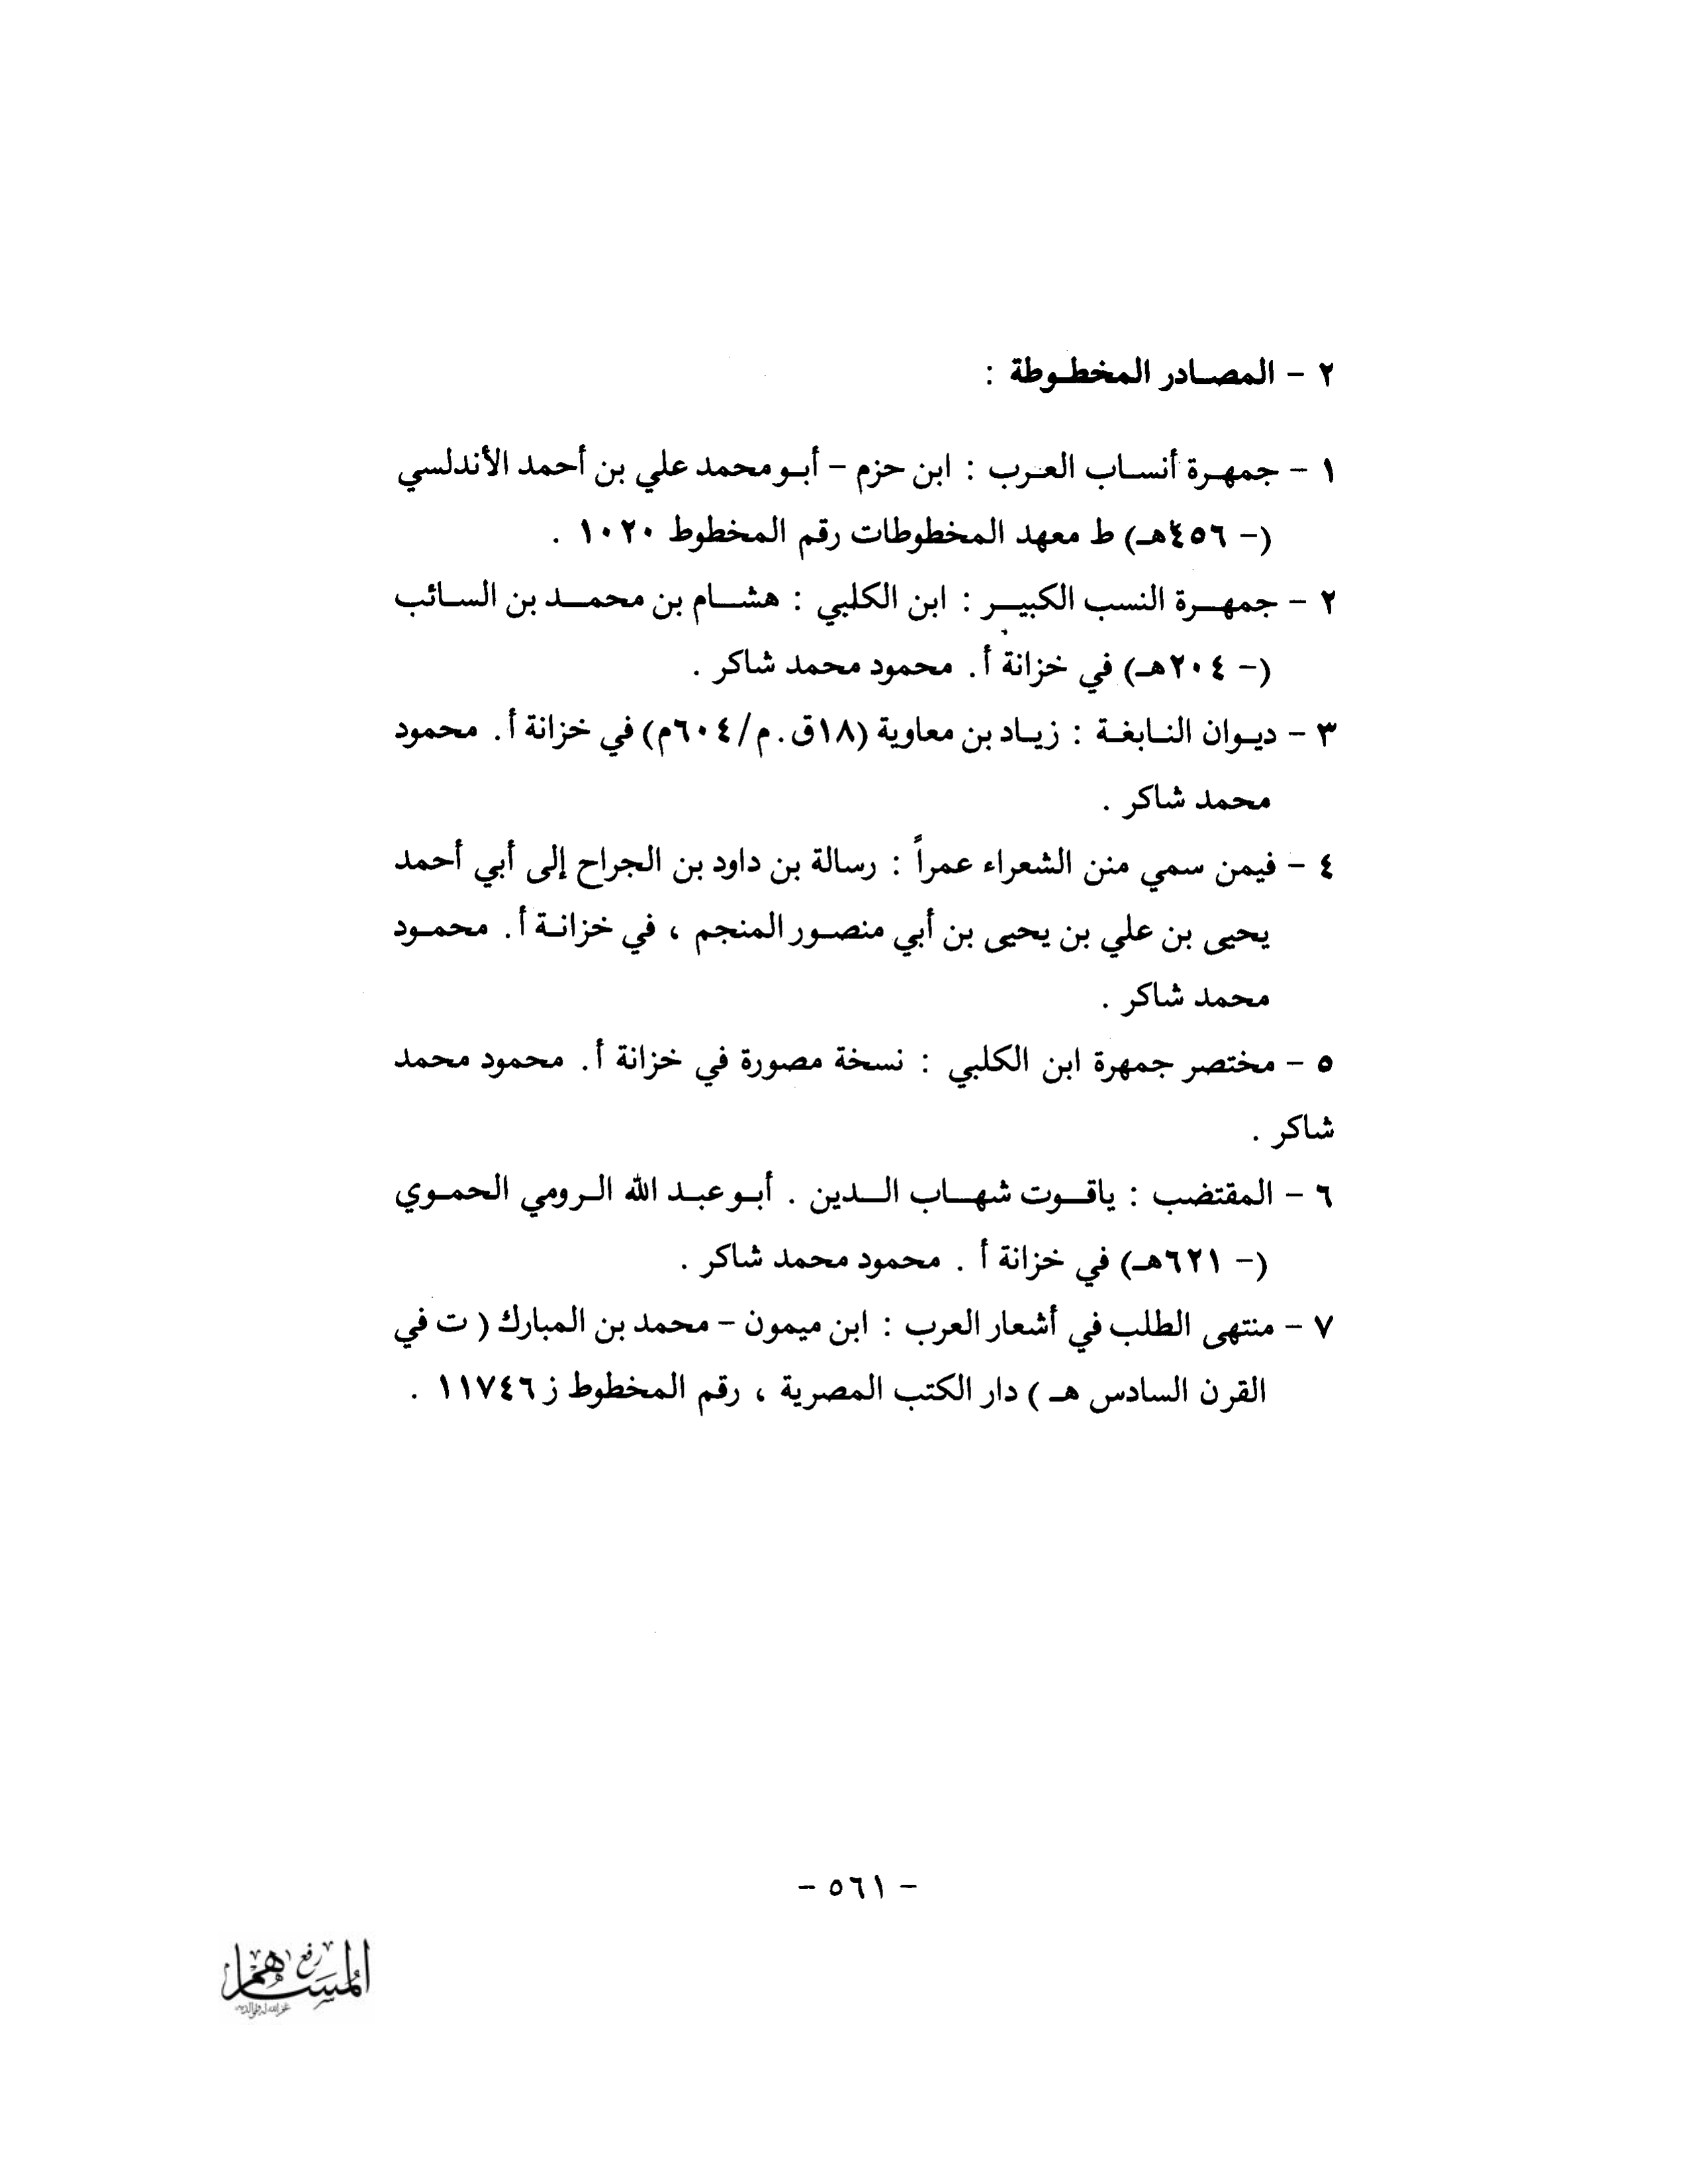 ٢ - المصادر المخطوطة :
١ - جمهرة أنساب العرب : ابن حزم - أبو محمد علي بن أحمد الأندلسي
(- ٤٥٦هـ) ط معهد المخطوطات رقم المخطوط ١٠٢٠ .
٢ - جمهرة النسب الكبير : ابن الكلبي : هشام بن محمد بن السائب
(- ٢٠٤هـ) في خزانة أ. محمود محمد شاكر .
٣ - ديوان النابغة : زياد بن معاوية (١٨ق.م/٦٠٤م) في خزانة أ. محمود
محمد شاكر .
٤ - فيمن سمي منن الشعراء عمراً : رسالة بن داود بن الجراح إلى أبي أحمد
يحيى بن علي بن يحيى بن أبي منصور المنجم ، في خزانة أ. محمود
محمد شاكر .
٥ - مختصر جمهرة ابن الكلبي : نسخة مصورة في خزانة أ. محمود محمد
شاكر .
٦ - المقتضب : ياقوت شهاب الدين . أبو عبد الله الرومي الحموي
(- ٦٢١هـ) في خزانة أ . محمود محمد شاكر .
٧ - منتهى الطلب في أشعار العرب : ابن ميمون - محمد بن المبارك ( ت في
القرن السادس هـ ) دار الكتب المصرية ، رقم المخطوط ز ١١٧٤٦ .
- ٥٦١ -